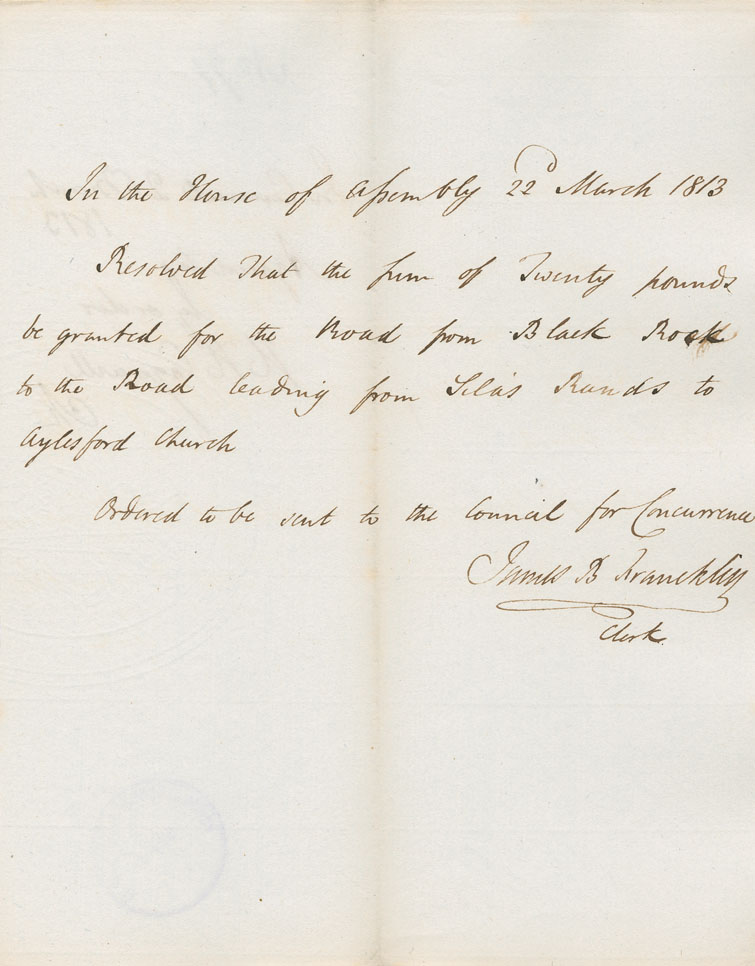 In the House of Assembly 22d March 1813
Resolved That the sum of Twenty pounds
be granted for the Road from Black Rock
to the Road leading from Silas Rands to
Aylesford Church
Ordered to be sent to the Council for Concurrence
James B Franckley
Clerk